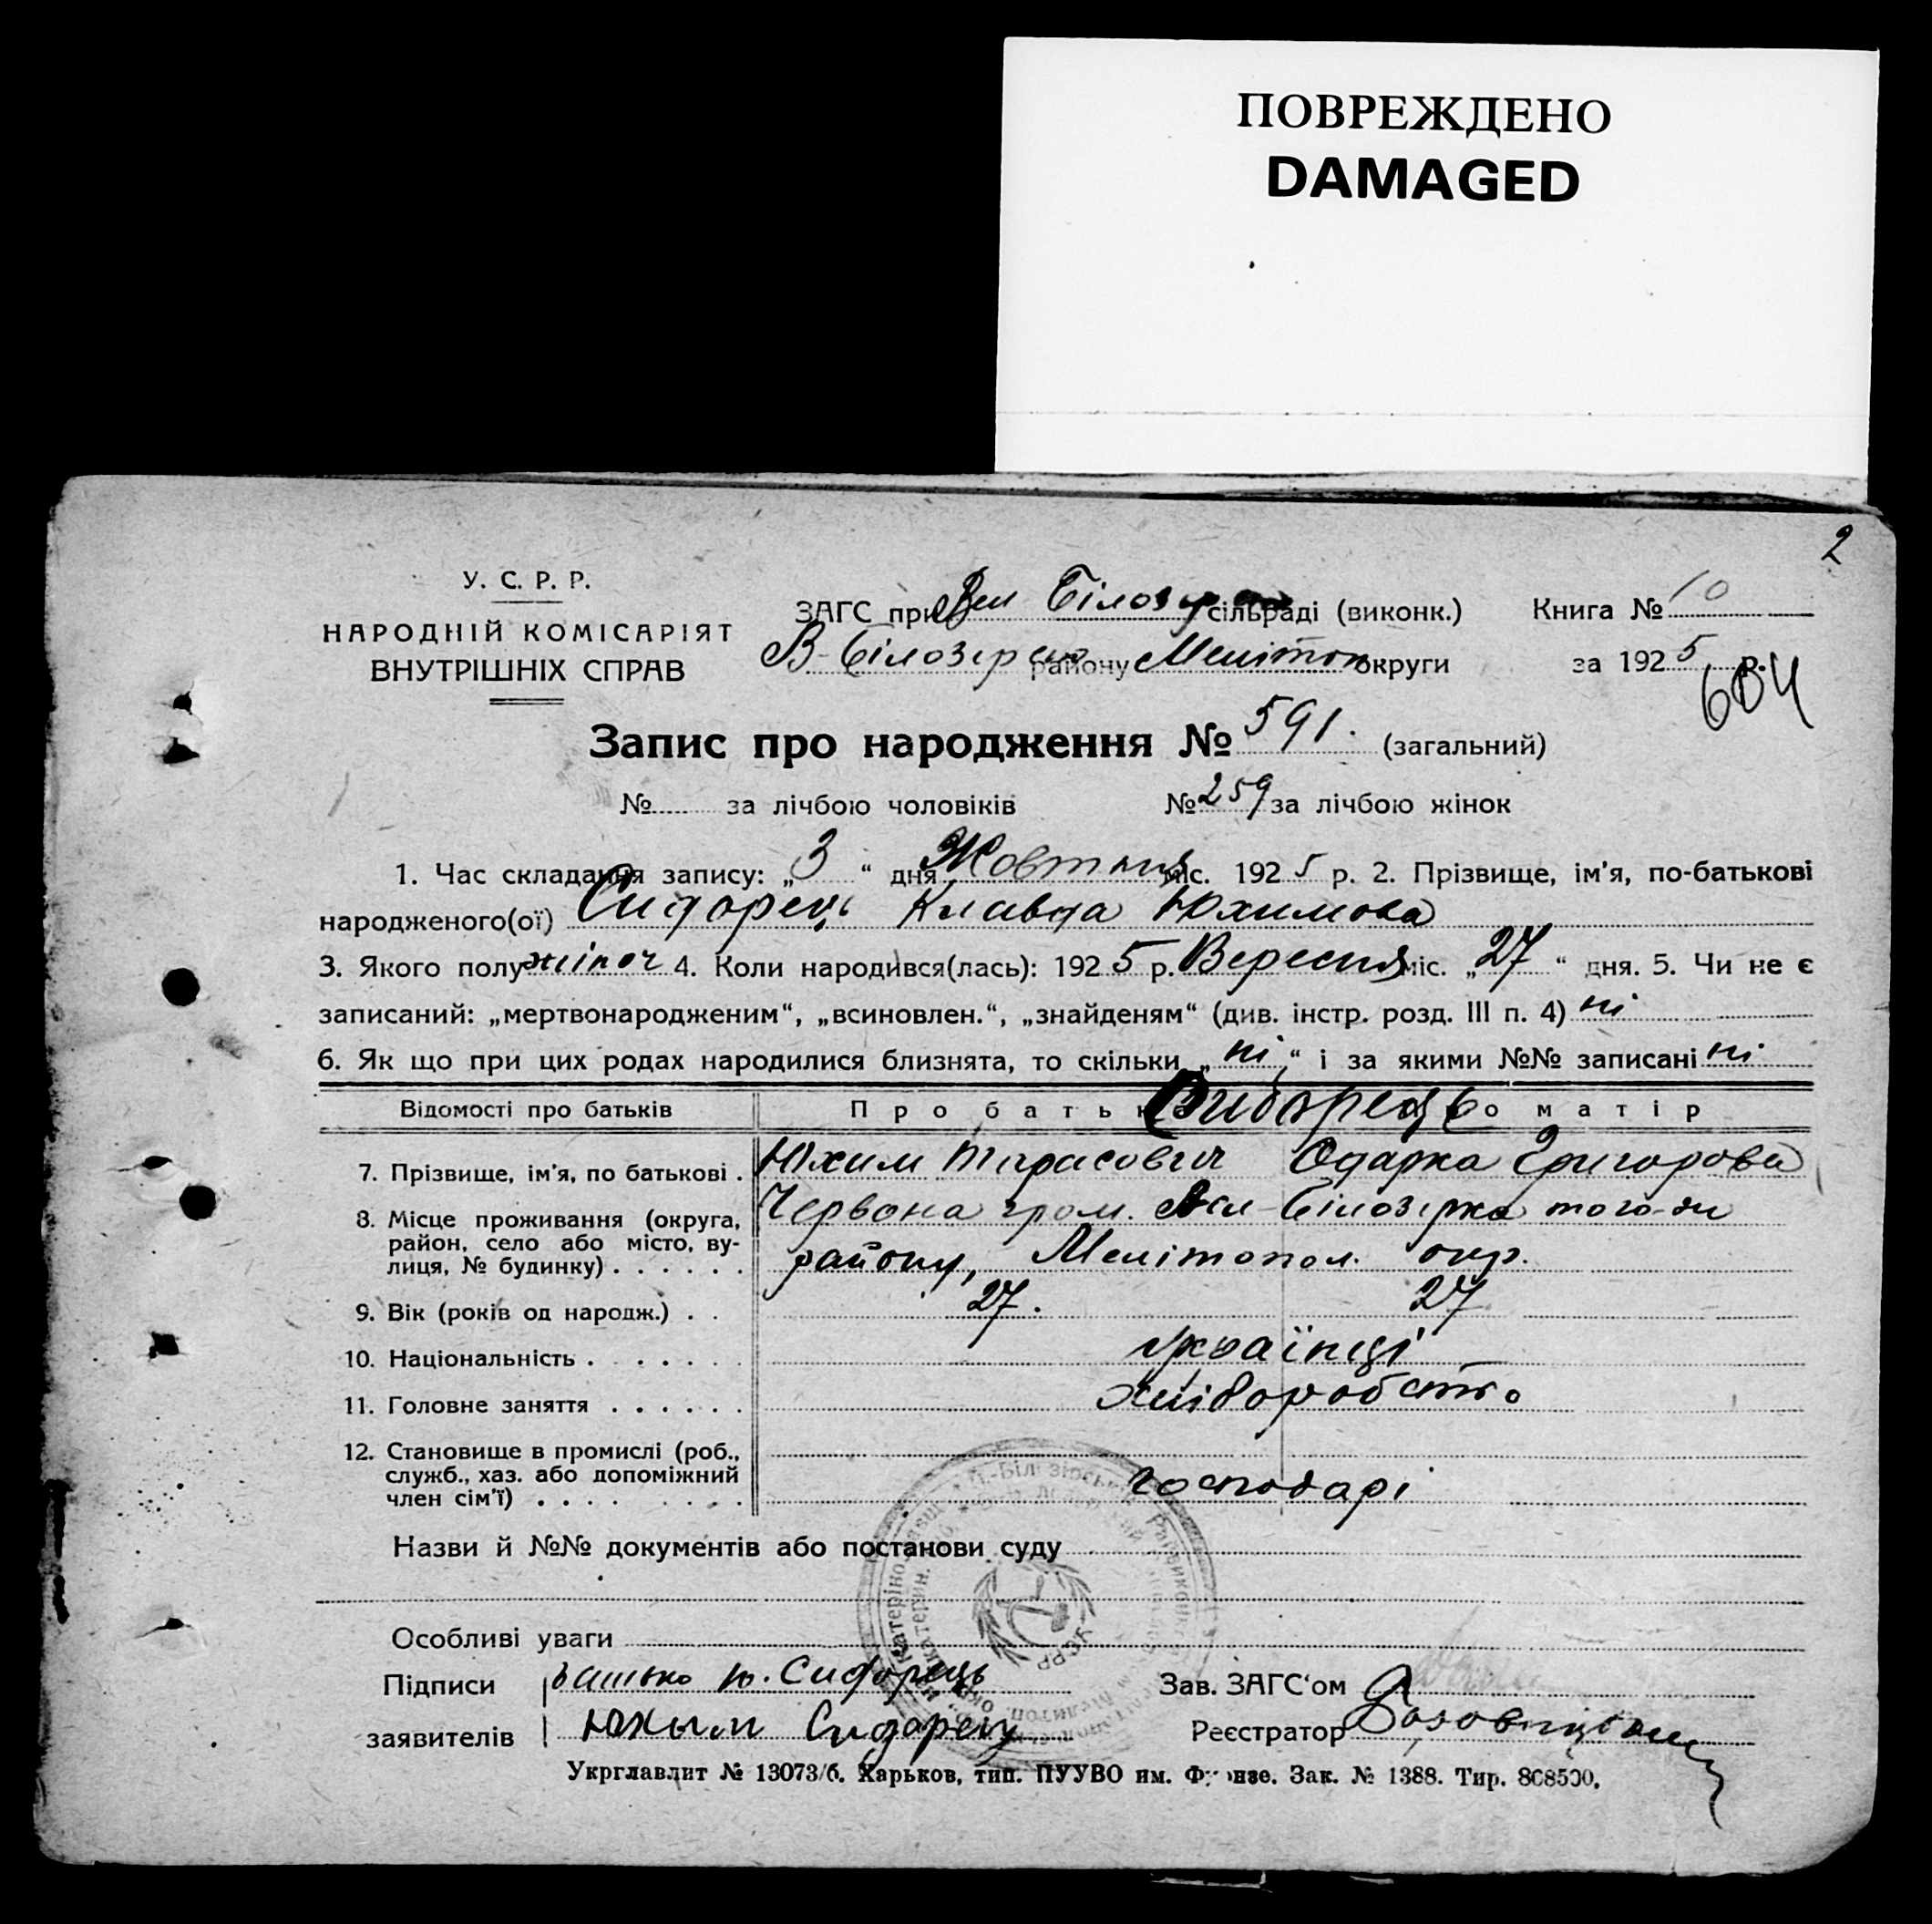 ПОВРЕЖДЕНО
DAMAGED
2
У. С. Р. Р.
НАРОДНІЙ КОМІСАРІЯТ
ВНУТРІШНІХ СПРАВ
ЗАГС при Вел Білозер сільраді (виконк.) Книга № 10
В-Білозірсько району Мелітоп округи за 1925 р.
604
Запис про народження № 591. (загальний)
№ за лічбою чоловіків № 259 за лічбою жінок
1. Час складання запису: „3“ дня Жовтня міс. 1925 р. 2. Прізвище, ім'я, по-батькові
народженого(ої) Сидорець Клавда Юхимова
3. Якого полу жіноч 4. Коли народився(лась): 1925 р. Вересня міс. „27“ дня. 5. Чи не є
записаний: „мертвонародженим“, „всиновлен.“, „знайденям“ (див. інстр. розд. III п. 4) ні
6. Як що при цих родах народилися близнята, то скільки „ні“ і за якими №№ записані ні
Відомості про батьків Про батьк Сидорець о матір
7. Прізвище, ім'я, по батькові . Юхим Тарасович Одарка Григорова
8. Місце проживання (округа, район, село або місто, вулиця, № будинку) . . . . . . Червона гром. Вел-Білозірка того-ж
району, Мелітопол. окр.
9. Вік (років од народж.) . . 27. 27
10. Національність . . . . . . . українці
11. Головне заняття . . . . . . хліборобство
12. Становище в промислі (роб.,
служб., хаз. або допоміжний
член сім'ї) . . . . . . . . . господарі
Назви й №№ документів або постанови суду
УСРР
Особливі уваги
Підписи батько Ю. Сидорець Зав. ЗАГС'ом
заявителів Юхым Сидорець Реєстратор
Укрглавлит № 13073/б. Харьков, тип. ПУУВО им. Фрунзе. Зак. № 1388. Тир. 808500.